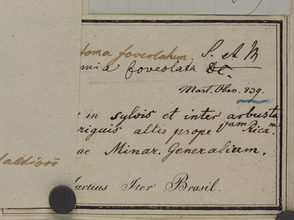 toma foveolatum, S. et M
foveolata DC.
Mart. Obs. 839.
in sylvis et inter arbusta
riguis altis prope Vam Ricam.
ae Minar. Generalium.
Martius Iter Brasil.